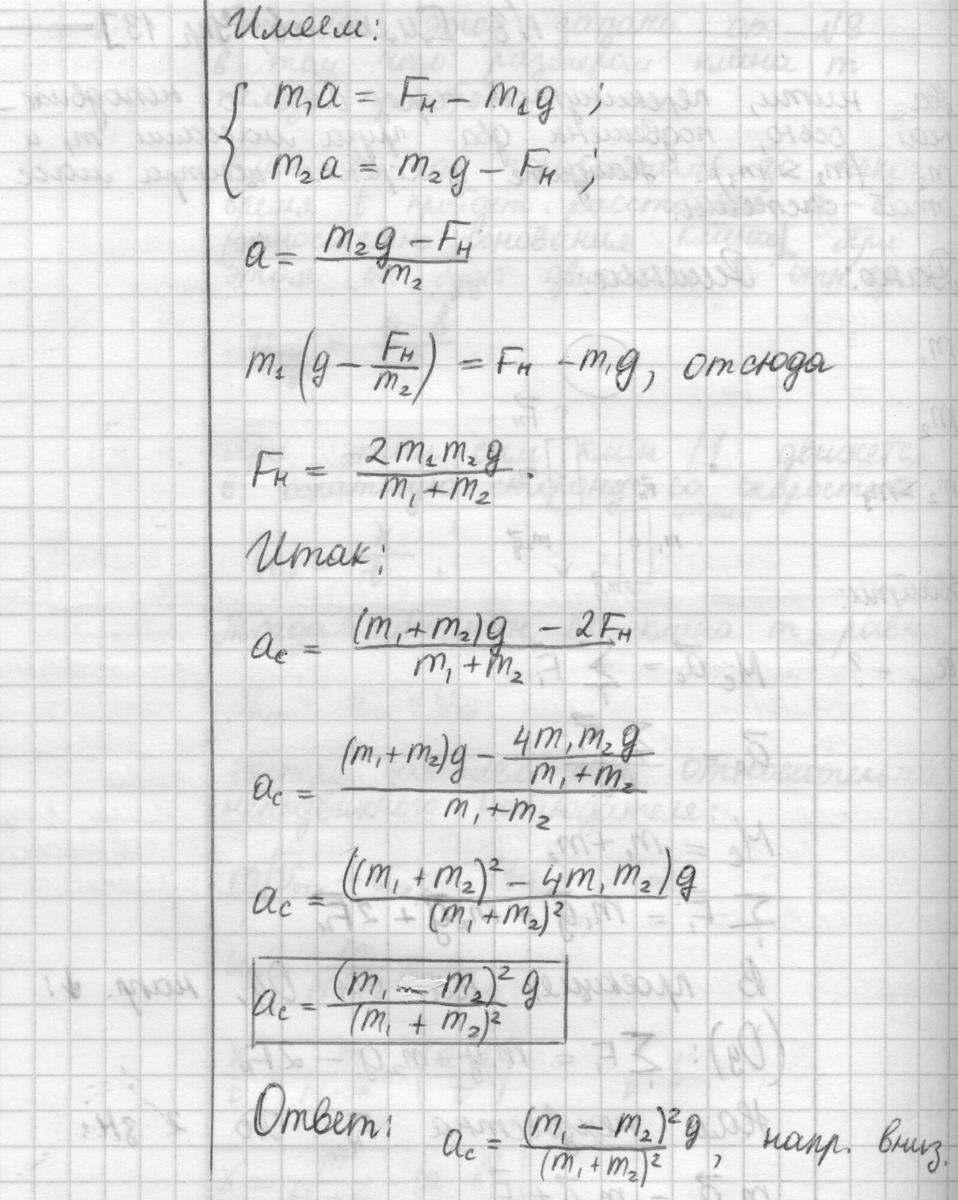 Имеем:
{ m₁a = Fн − m₁g ;
m₂a = m₂g − Fн ;
a = (m₂g − Fн) / m₂
m₁ (g − Fн/m₂) = Fн − m₁g, отсюда
Fн = 2m₁m₂g / (m₁ + m₂) .
Итак:
aс = ((m₁ + m₂)g − 2Fн) / (m₁ + m₂)
aс = ((m₁ + m₂)g − 4m₁m₂g / (m₁ + m₂)) / (m₁ + m₂)
aс = ((m₁ + m₂)² − 4m₁m₂)g / (m₁ + m₂)²
aс = (m₁ − m₂)² g / (m₁ + m₂)²
Ответ: aс = (m₁ − m₂)² g / (m₁ + m₂)² , напр. вниз.